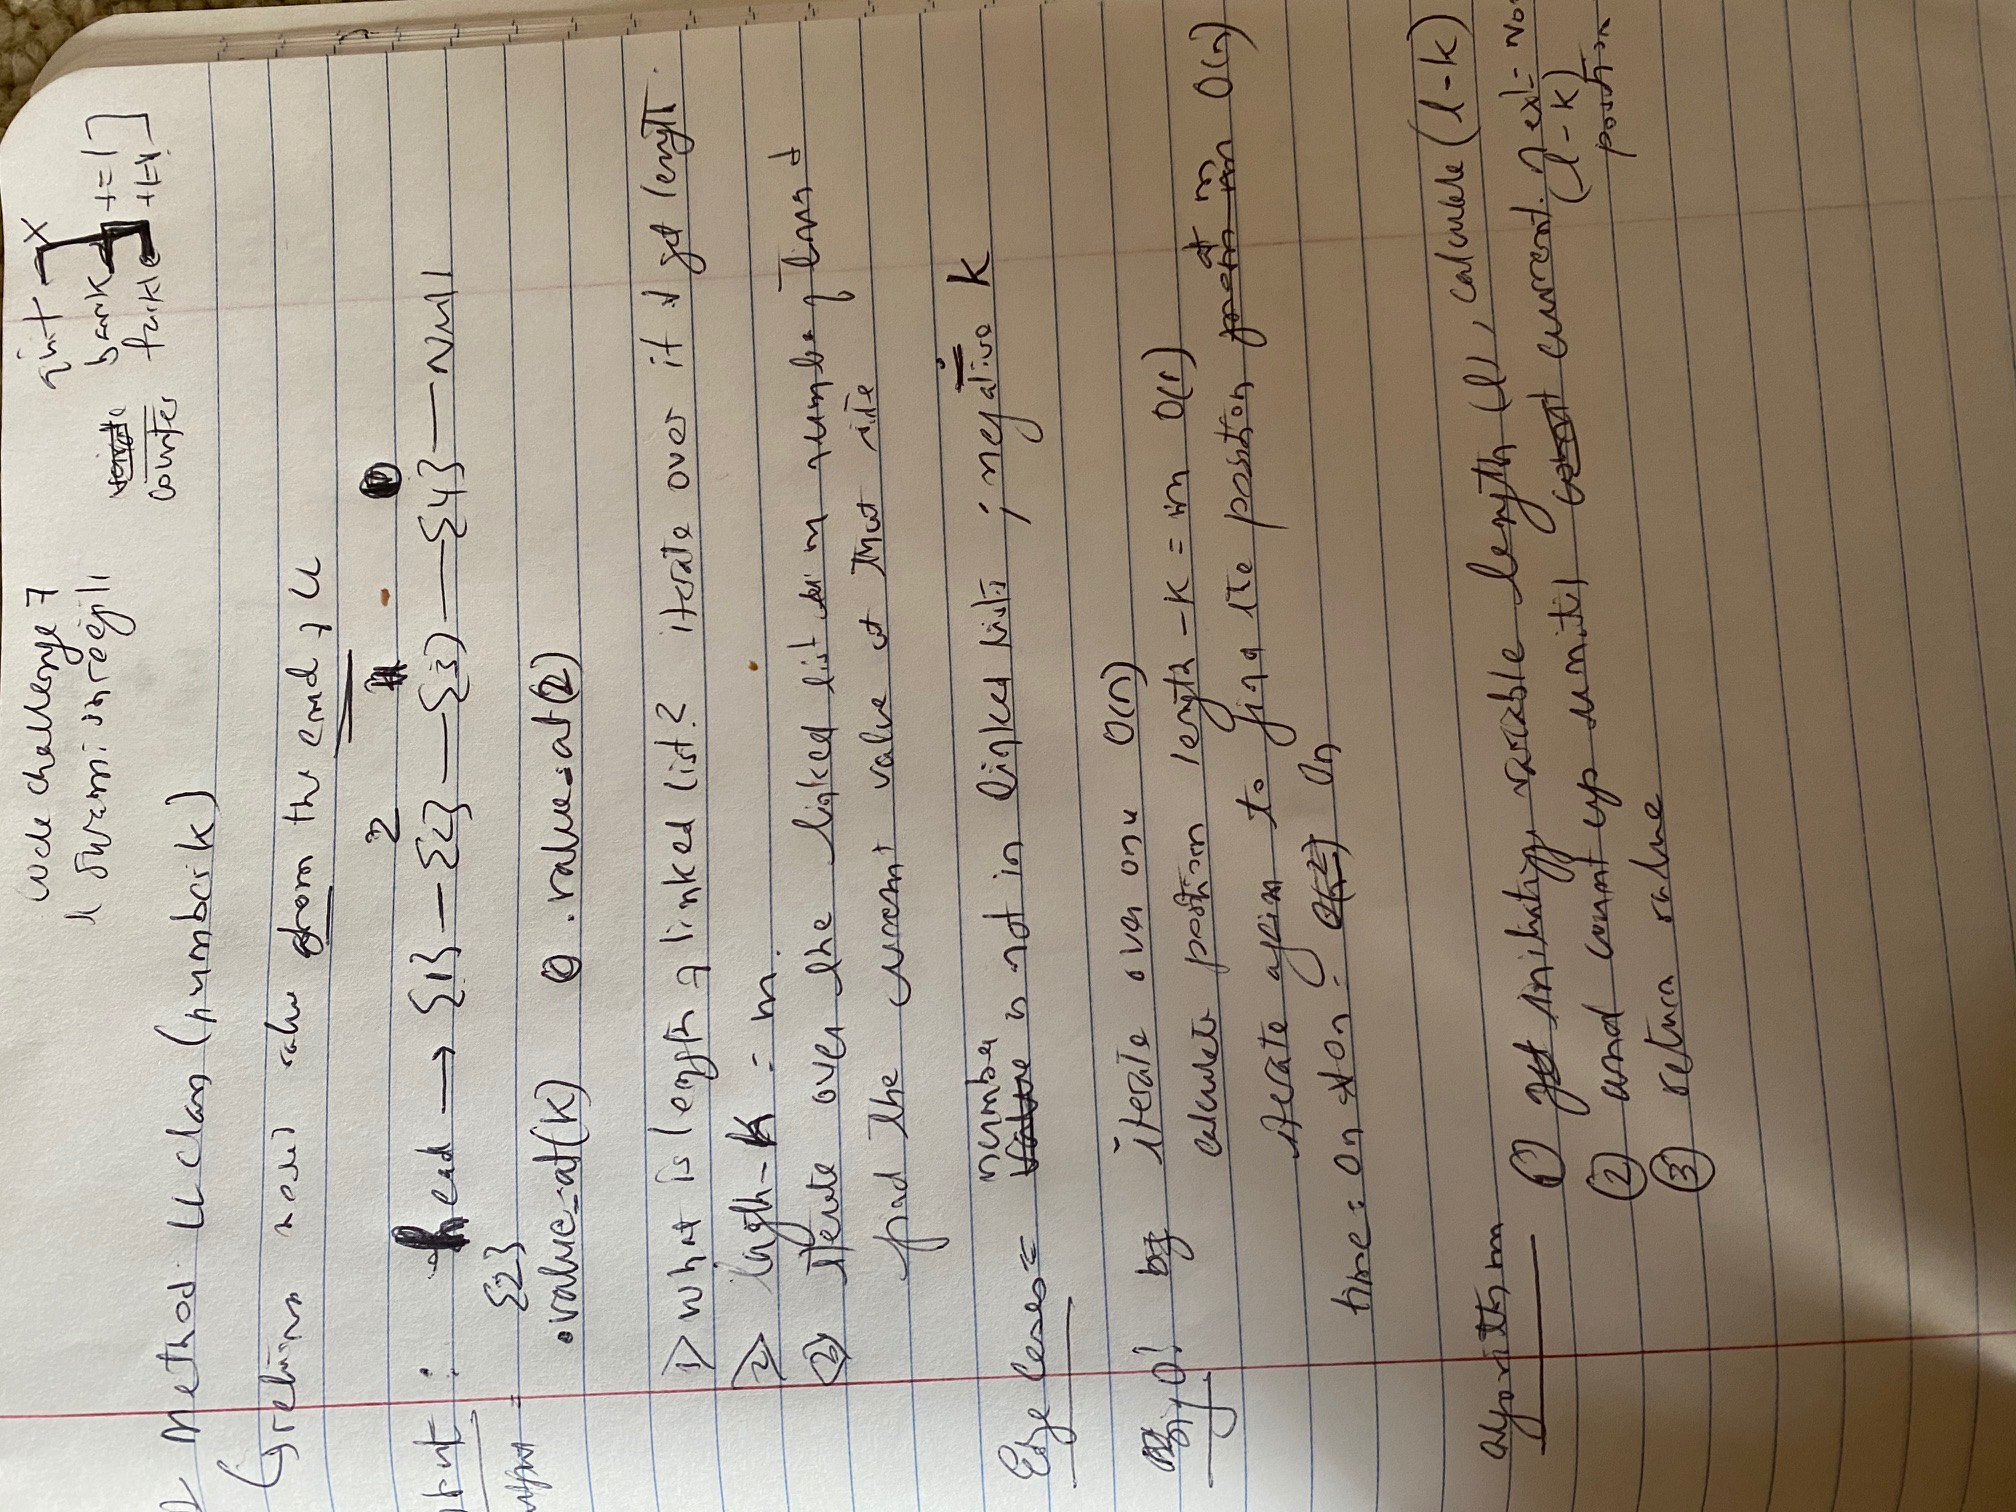 code challenge 7
quit x
bark += 1
counter
Method LL class (number k)
returns node's value from the end of LL
2 0
: head → {1} — {2} — {3} — {4} — Null
= {2}
.value_at(k) .value_at(2)
1> what is length of linked list? iterate over it & get length.
2> lngth - k = m.
3> iterate over the linked list m number of times &
find the current value at that
Edge Cases = number value is not in linked lists ; negative k
Big O! iterate over once O(n)
calculate position length - k = m O(1)
iterate again to find the position at m O(n)
time: On + On = O(n²) On
algorithm
① get variable length (l), calculate (l-k)
② and count up until current.next =
(l-k)
position
③ return value